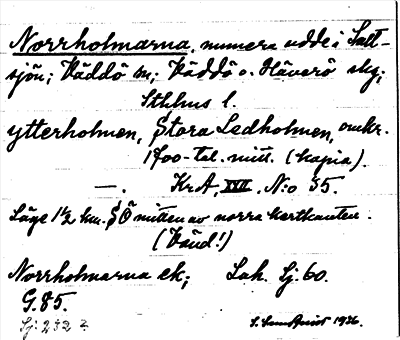 Norrholmarna, numera udde i Salt-
sjön; Väddö sn; Väddö o. Häverö skg;
Sthlms l.
ytterholmen, Stora Ledholmen, omkr.
1700-tal. mitt. (kopia).
—. KrA, XVII, N:o 35.
Läge 1½ km. SÖ mitten av norra kartkanten.
(Vänd!)
Norrholmarna ek; Lah. Sj: 60.
G. 85.
Sj: 232 2
1936.